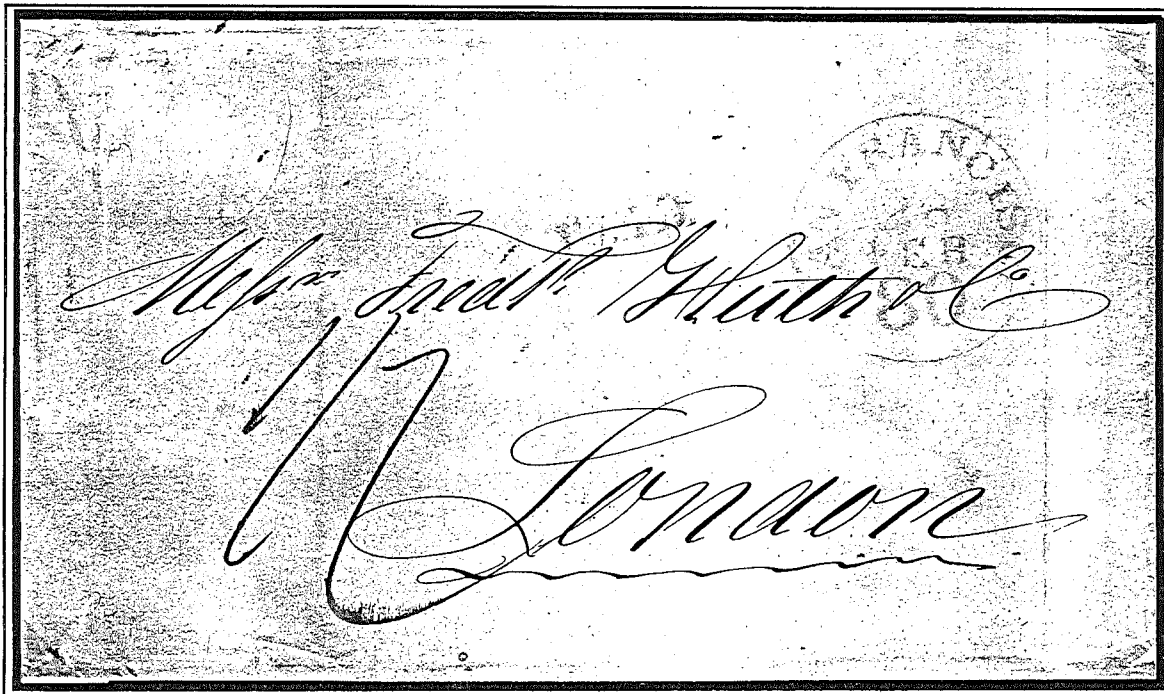 FRANCIS
FEB
Messrs. Fredk. Huth & Co.
London